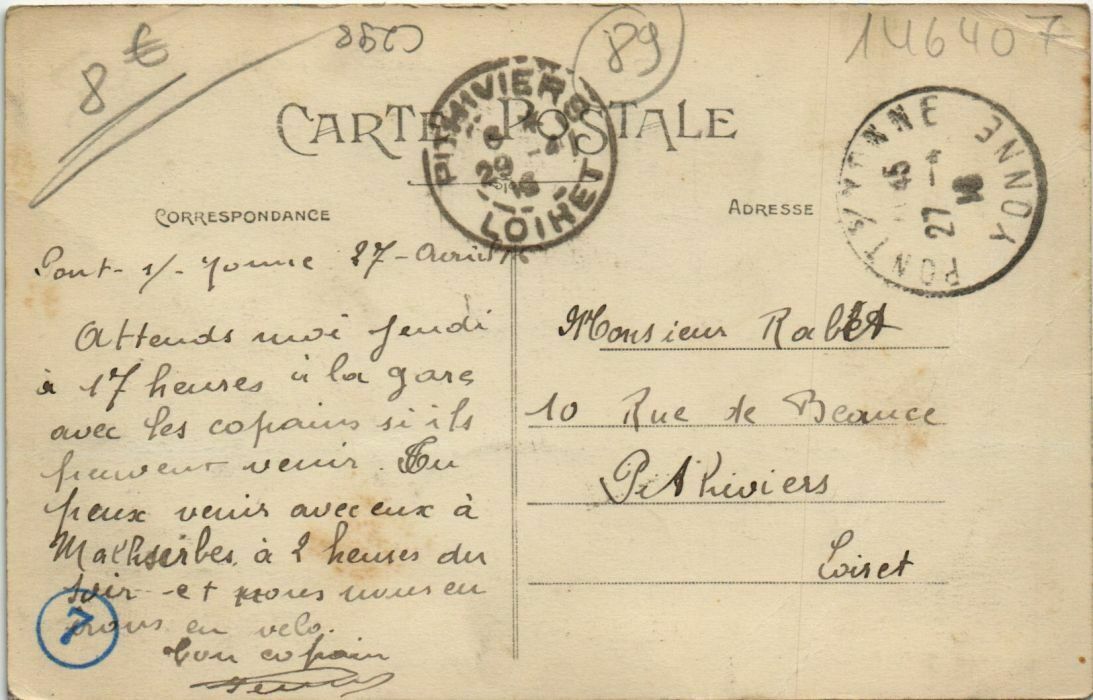 8€
8520
89
146407
CARTE POSTALE
PITHIVIERS
29
LOIRET
PONT S/ YONNE YONNE
45
27 - 4
CORRESPONDANCE
ADRESSE
Pont-s/-Yonne 27-Avril
Attends moi Jeudi
à 17 heures à la gare
avec les copains si ils
peuvent venir. Tu
peux venir avec eux à
Malhserbes à 2 heures du
soir - et nous nous en
irons en velo.
Ton copain
7
Monsieur Rabet
10 Rue de Beauce
Pithiviers
Loiret